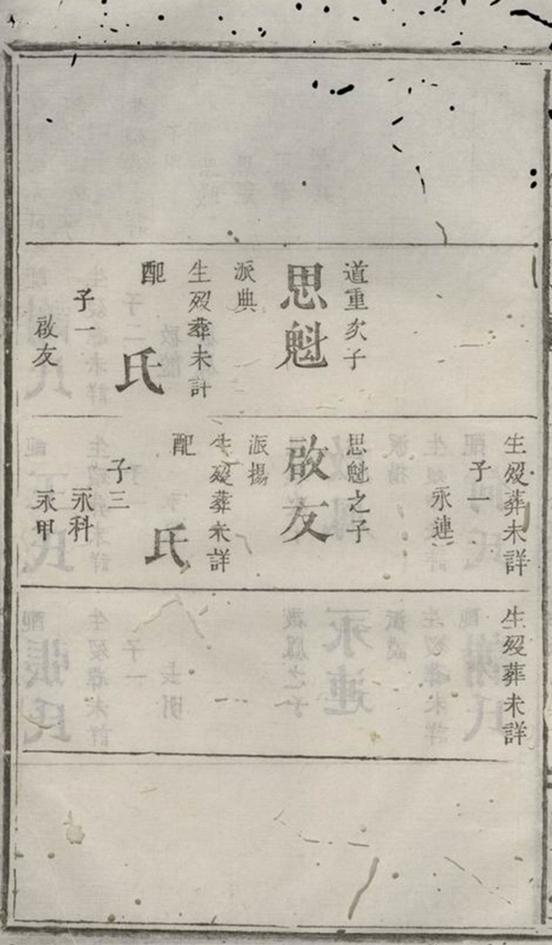 道重次子
思魁
派典
生殁葬未詳
配
氏
子一
啟友
生殁葬未詳
子一
永連
思魁之子
啟友
派揚
生殁葬未詳
配
氏
子三
永科
永甲
生殁葬未詳